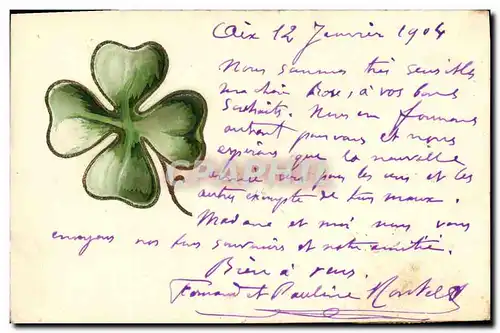 Aix 12 Janvier 1904
Nous sommes très sensibles
ma chère Rose, à vos bons
souhaits. Nous en formons
autant pour vous et nous
espérons que la nouvelle
année sera pour les uns et les
autres exempte de tous maux.
Madame et moi nous vous
envoyons nos bons souvenirs et notre amitié.
Bien à vous.
Fernand et Pauline